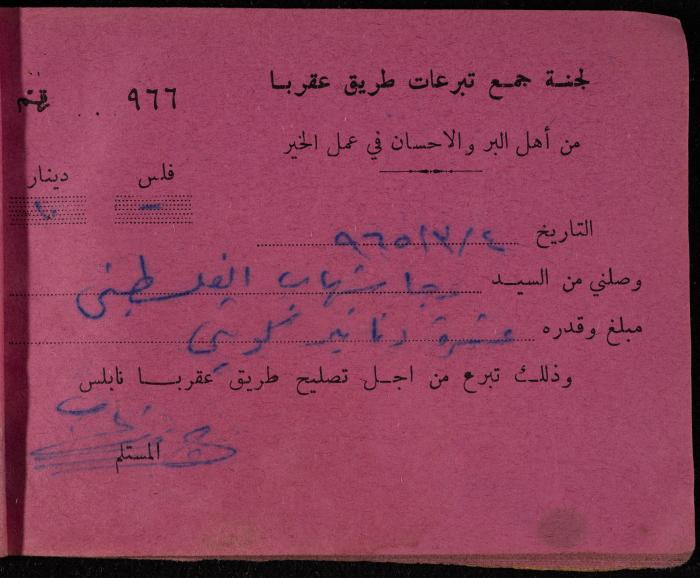 لجنة جمع تبرعات طريق عقربا
٩٦٦
من أهل البر والاحسان في عمل الخير
فلس دينار
— ١٠
التاريخ ٩٦٥/٣/٤
وصلني من السيد رجا شهاب الفلسطيني
مبلغ وقدره عشرة دنانير كويتي
وذلك تبرع من اجل تصليح طريق عقربا نابلس
المستلم